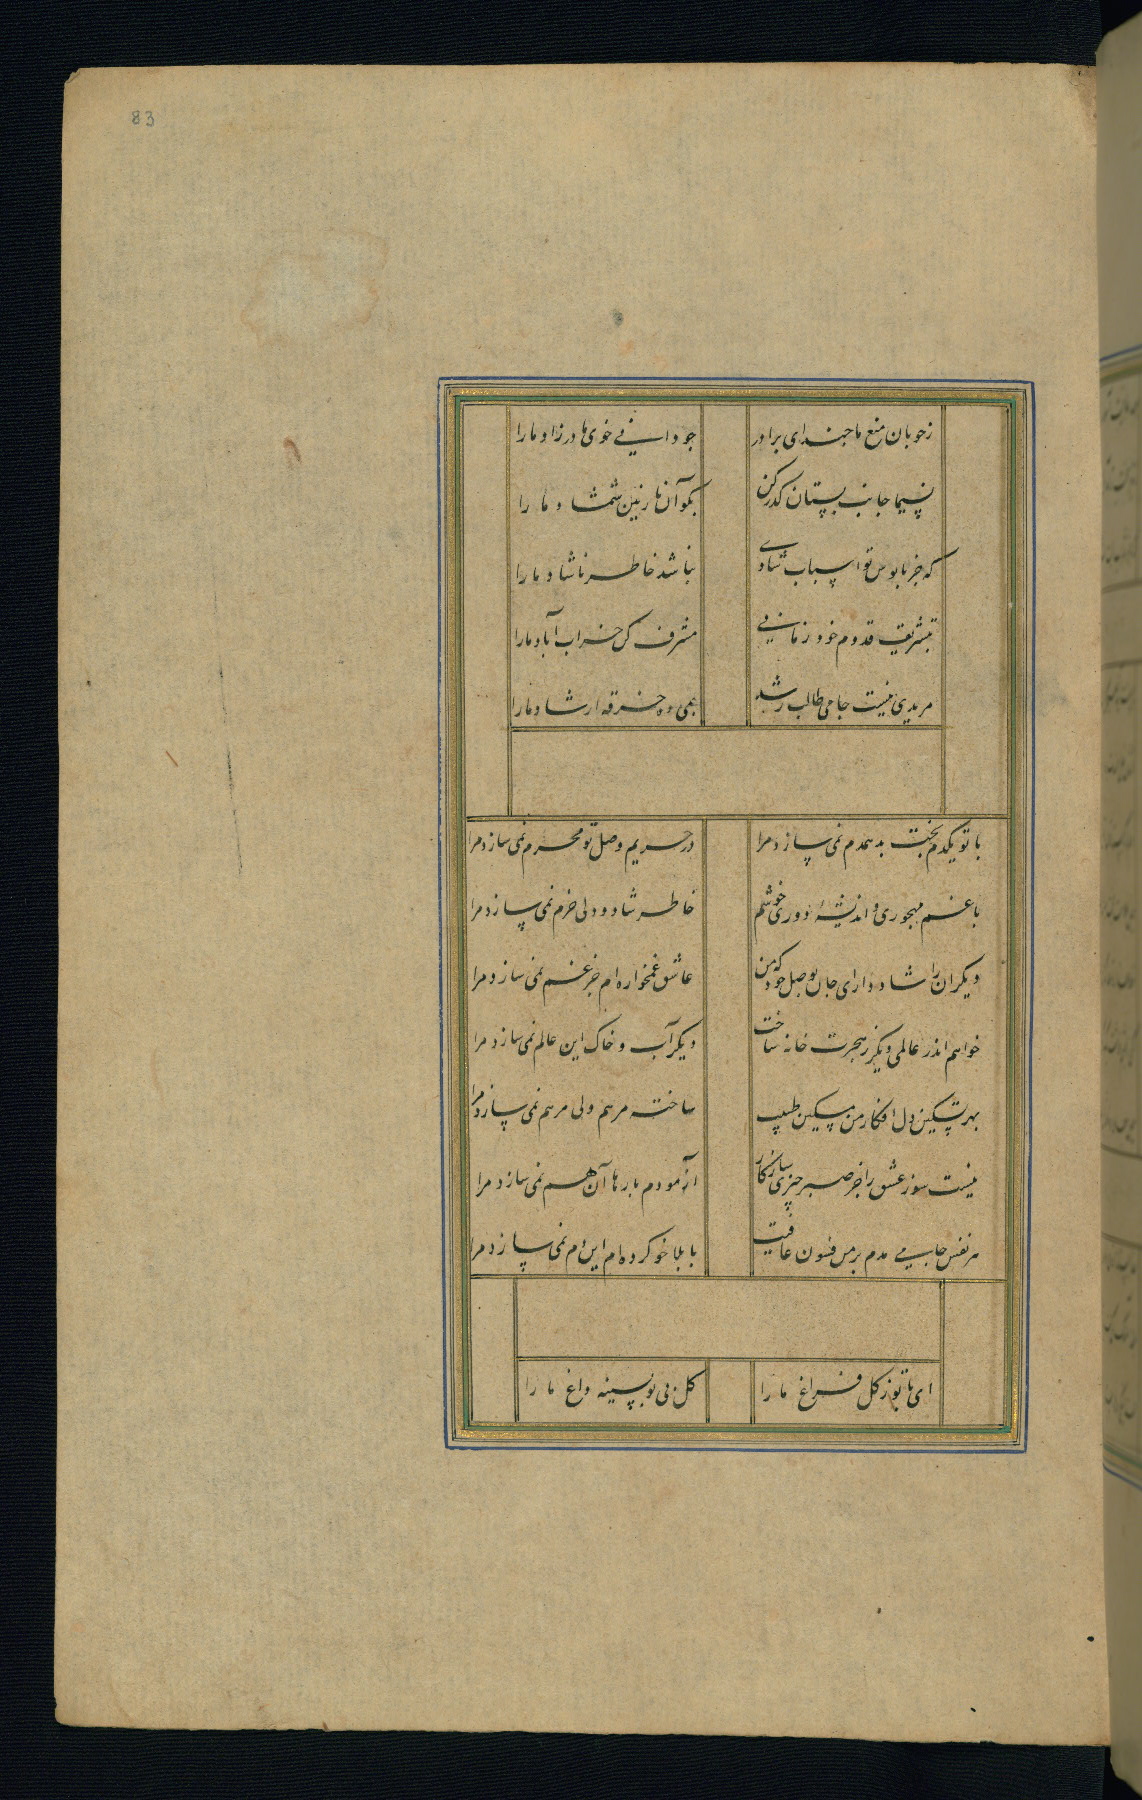 83
ز خوبان منع ما چند ای برادر چو دانی خوی مادرزاد ما را
نسیما جانب بستان گذر کن بگو آن نازنین شمشاد ما را
که جز پابوس تو اسباب شادی نباشد خاطر ناشاد ما را
تبشریف قدوم خود زمانی مشرف کن خراب آباد ما را
مریدی نیست جامی طالب رشد بمی ده خرقه ارشاد ما را
با تو یکدم بخت بد همدم نمی سازد مرا در حریم وصل تو محرم نمی سازد مرا
با غم مهجوری و اندیشه دوری خوشم خاطر شاد و دلی خرم نمی سازد مرا
دیگران را شاد دار ای جان بوصل خود که من عاشق غمخواره ام جز غم نمی سازد مرا
خواهم اندر عالمی دیگر ز هجرت خانه ساخت دیگر آب و خاک این عالم نمی سازد مرا
بهر تسکین دل افکار من مسکین طبیب ساخته مرهم ولی مرهم نمی سازد مرا
نیست سوز عشق را جز صبر چیزی سازگار آزمودم بارها آن هم نمی سازد مرا
هر نفس جامی مدم بر من فسون عافیت با بلا خو کرده ام این دم نمی سازد مرا
ای با تو ز گل فراغ ما را گل بی تو بسینه داغ ما را